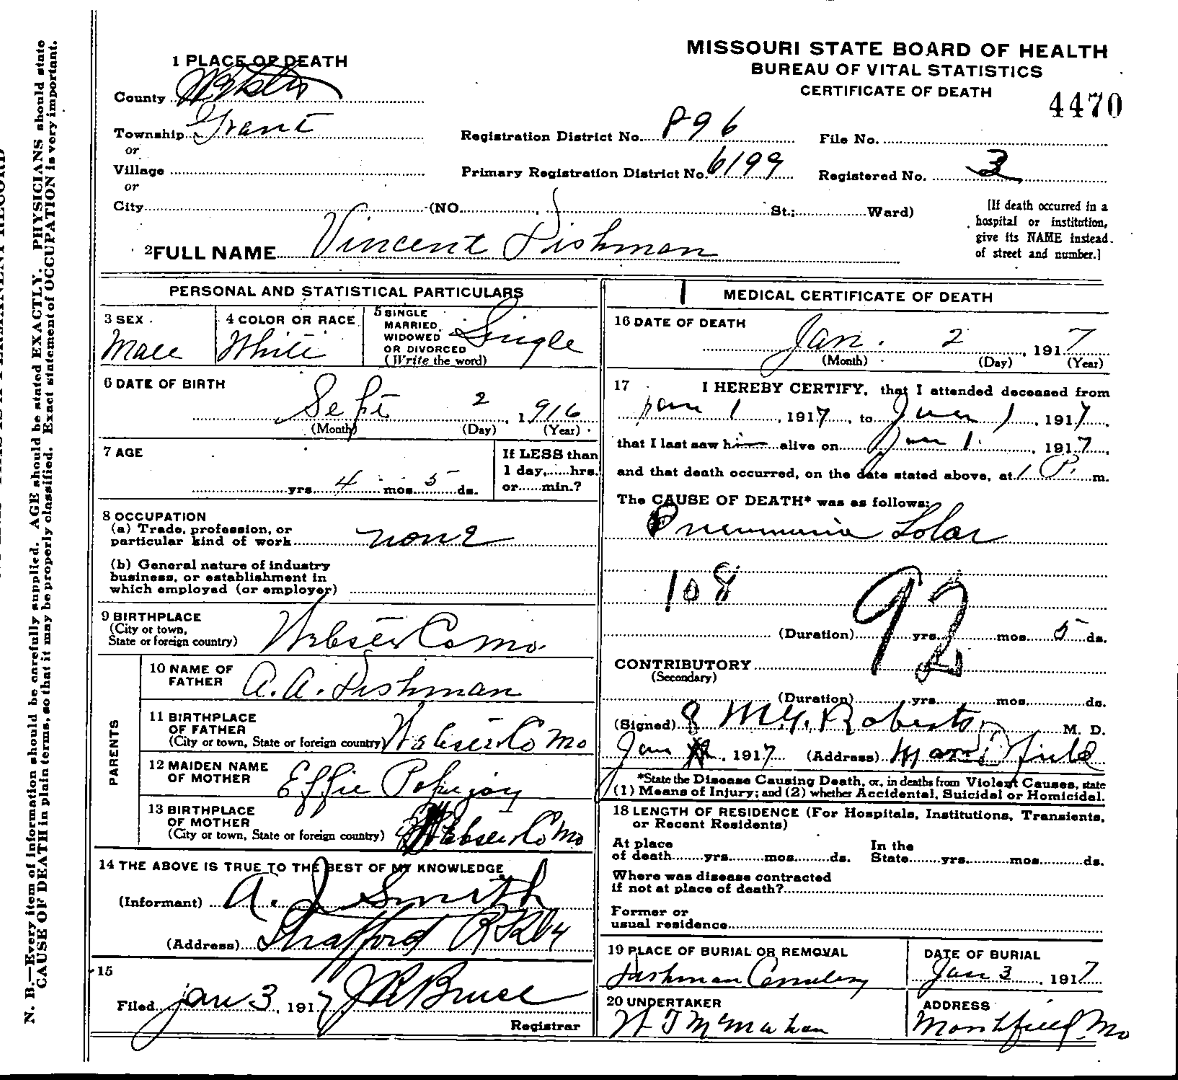 MISSOURI STATE BOARD OF HEALTH
BUREAU OF VITAL STATISTICS
CERTIFICATE OF DEATH
4470
1 PLACE OF DEATH
County Webster
Township Grant
or
Village
or
City (NO. St.; Ward)
Registration District No. 896
File No.
Primary Registration District No. 6199
Registered No. 3
[If death occurred in a
hospital or institution,
give its NAME instead
of street and number.]
2 FULL NAME Vincent Dishman
PERSONAL AND STATISTICAL PARTICULARS
3 SEX
Male
4 COLOR OR RACE
White
5 SINGLE
MARRIED,
WIDOWED
OR DIVORCED
(Write the word)
Single
6 DATE OF BIRTH
Sept 2, 1916
(Month) (Day) (Year)
7 AGE
yrs. 4 mos. 5 ds.
If LESS than
1 day, hrs.
or min.?
8 OCCUPATION
(a) Trade, profession, or
particular kind of work none
(b) General nature of industry
business, or establishment in
which employed (or employer)
9 BIRTHPLACE
(City or town,
State or foreign country) Webster Co Mo.
PARENTS
10 NAME OF
FATHER A. A. Dishman
11 BIRTHPLACE
OF FATHER
(City or town, State or foreign country) Webster Co Mo
12 MAIDEN NAME
OF MOTHER Effie
13 BIRTHPLACE
OF MOTHER
(City or town, State or foreign country) Webster Co Mo
14 THE ABOVE IS TRUE TO THE BEST OF MY KNOWLEDGE
(Informant) A. J Smith
(Address) Strafford
15
Filed Jan 3, 1917 J R Bruce
Registrar
MEDICAL CERTIFICATE OF DEATH
16 DATE OF DEATH
Jan. 2, 1917
(Month) (Day) (Year)
17 I HEREBY CERTIFY, that I attended deceased from
Jan 1, 1917, to Jan 1, 1917,
that I last saw him alive on Jan 1, 1917,
and that death occurred, on the date stated above, at 1 P. m.
The CAUSE OF DEATH* was as follows:
Pneumonia Lobar
108
92
(Duration) yrs. mos. 5 ds.
CONTRIBUTORY
(Secondary)
(Duration) yrs. mos. ds.
(Signed) Roberts M. D.
Jan, 1917 (Address) Marshfield
*State the Disease Causing Death, or, in deaths from Violent Causes, state
(1) Means of Injury; and (2) whether Accidental, Suicidal or Homicidal.
18 LENGTH OF RESIDENCE (For Hospitals, Institutions, Transients,
or Recent Residents)
At place
of death yrs. mos. ds.
In the
State yrs. mos. ds.
Where was disease contracted
if not at place of death?
Former or
usual residence
19 PLACE OF BURIAL OR REMOVAL
Dishman Cemetery
DATE OF BURIAL
Jan 3, 1917
20 UNDERTAKER
W T McMahan
ADDRESS
Marshfield, Mo
N. B.—Every item of information should be carefully supplied. AGE should be stated EXACTLY. PHYSICIANS should state
CAUSE OF DEATH in plain terms, so that it may be properly classified. Exact statement of OCCUPATION is very important.